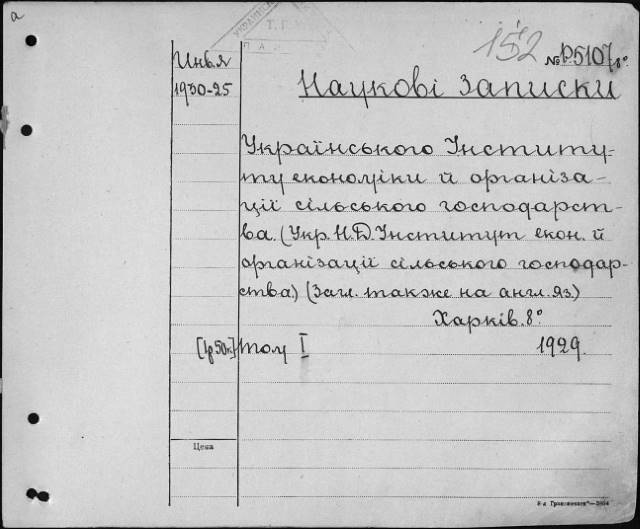 а
152
№ Р5107 8°
Инв.я
1930-25
Наукові записки
Українського Інститу-
ту економіки й організа-
ції сільського господарст-
ва. (Укр. Н.Д. Інститут екон. й
організації сільського господар-
ства) (Загл. также на англ. яз.)
Харків. 8°
[1р50к.] том I 1929.
Цена